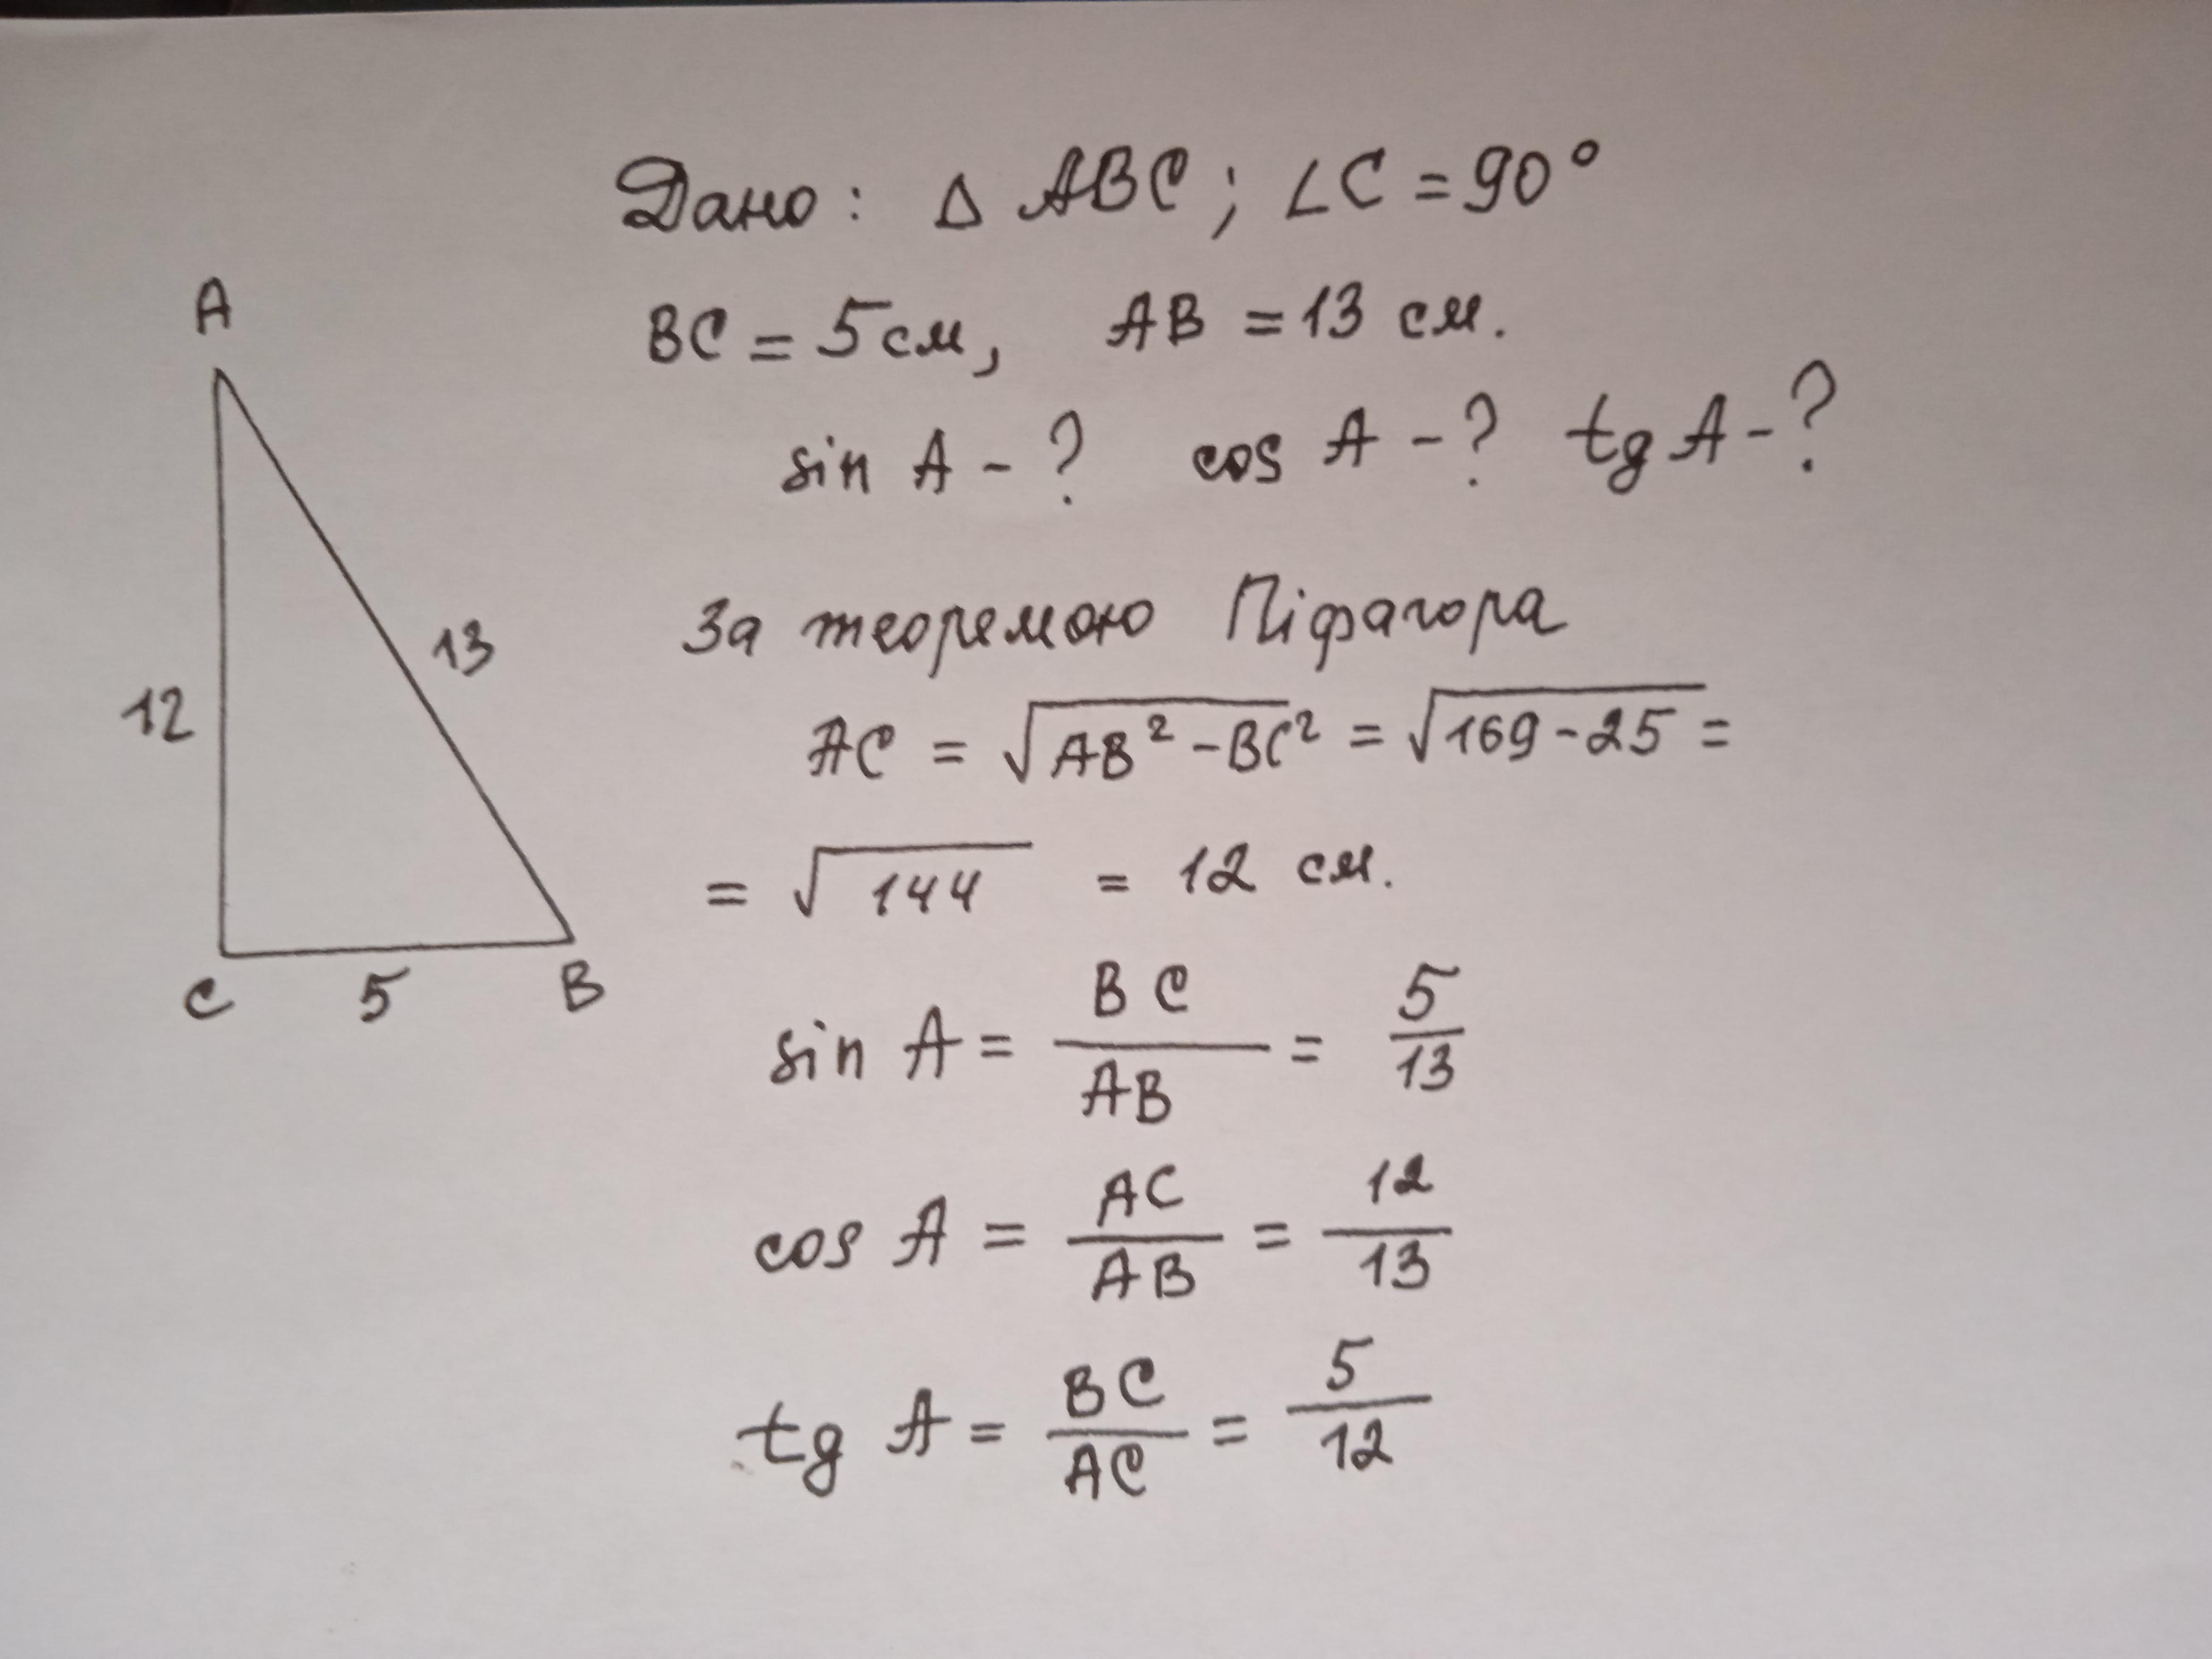 Дано: △ ABC; ∠C = 90°
BC = 5 см, AB = 13 см.
sin A - ? cos A - ? tg A - ?
A
12
13
C
5
B
За теоремою Піфагора
AC = √AB² - BC² = √169 - 25 =
= √144 = 12 см.
sin A = BC/AB = 5/13
cos A = AC/AB = 12/13
tg A = BC/AC = 5/12